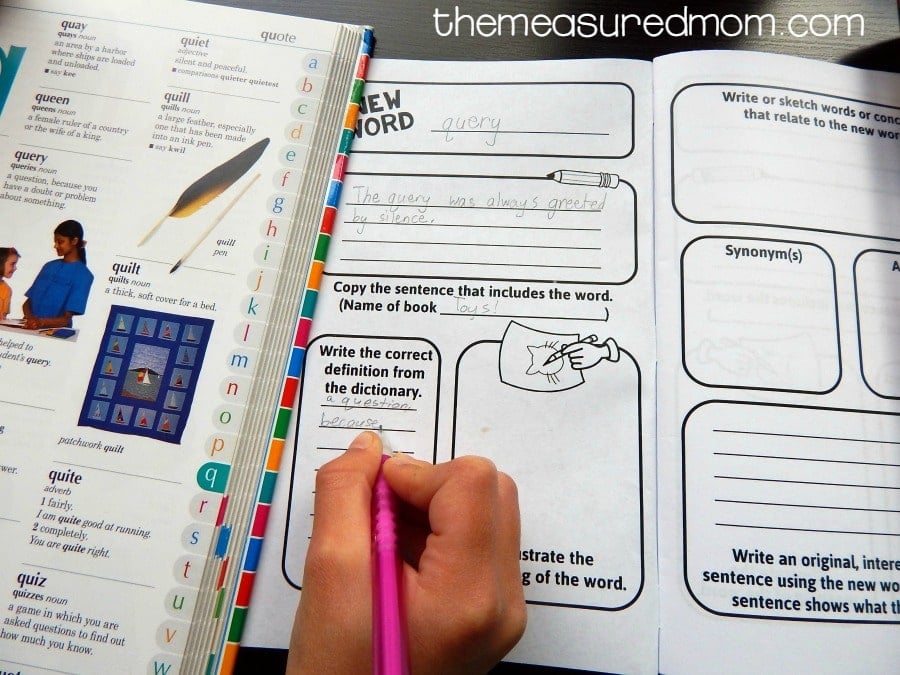 themeasuredmom.com
quay
quays noun
an area by a harbor
where ships are loaded
and unloaded.
■ say kee
queen
queens noun
a female ruler of a country
or the wife of a king.
query
queries noun
a question, because you
have a doubt or problem
about something.
helped to
student's query.
quiet
adjective
silent and peaceful.
■ comparisons quieter quietest
quote
quill
quills noun
a large feather, especially
one that has been made
into an ink pen.
■ say kwil
quill
pen
quilt
quilts noun
a thick, soft cover for a bed.
patchwork quilt
quite
adverb
1 fairly.
I am quite good at running.
2 completely.
You are quite right.
quiz
quizzes noun
a game in which you are
asked questions to find out
how much you know.
a
b
c
d
e
f
g
h
i
j
k
l
m
n
o
p
q
r
s
t
u
v
w
NEW
WORD query
The query was always greeted
by silence.
Copy the sentence that includes the word.
(Name of book Toys! )
Write the correct
definition from
the dictionary.
a question,
because
strate the
g of the word.
Write or sketch words or conc
that relate to the new wor
Synonym(s)
A
Write an original, intere
sentence using the new wo
sentence shows what th